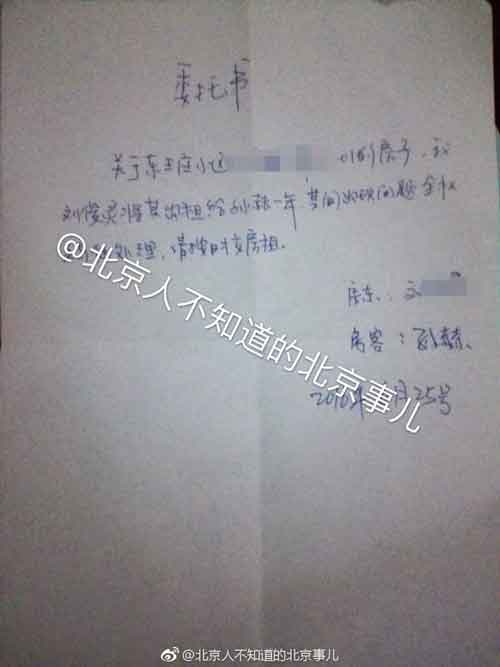 委托书
关于东王庄小区 的房子，我
刘俊灵将其出租给孙赫一年，期间出现问题全权
处理，请按时交房租。
房东：
房客：孙赫
2016年 月25号
@北京人不知道的北京事儿
@北京人不知道的北京事儿